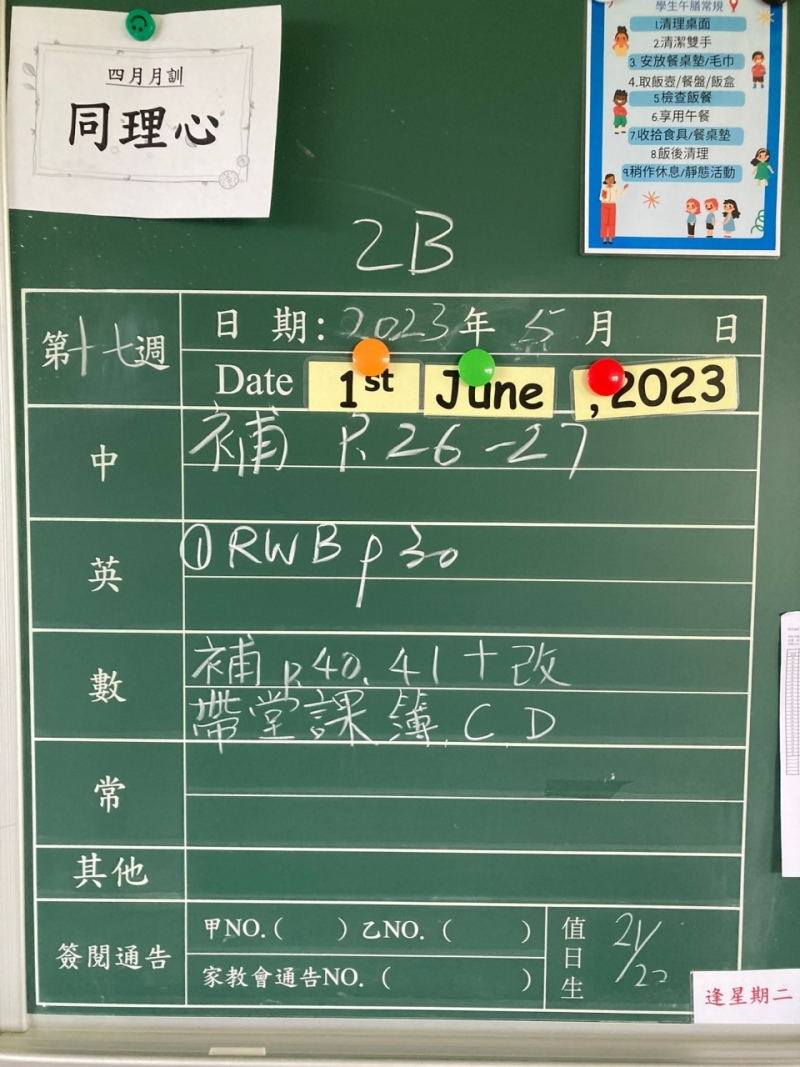 四月月訓
同理心
學生午膳常規
1.清理桌面
2.清潔雙手
3. 安放餐桌墊/毛巾
4.取飯壺/餐盤/飯盒
5.檢查飯餐
6.享用午餐
7.收拾食具/餐桌墊
8.飯後清理
9.稍作休息/靜態活動
2B
第十七週
日 期: 2023 年 5 月 日
Date 1st June , 2023
中
補 P.26-27
英
① RWB p 30
數
補 P.40.41 十改
帶堂課簿 C D
常
其他
簽閱通告
甲NO.( ) 乙NO. ( )
家教會通告NO. ( )
值日生
21/22
逢星期二